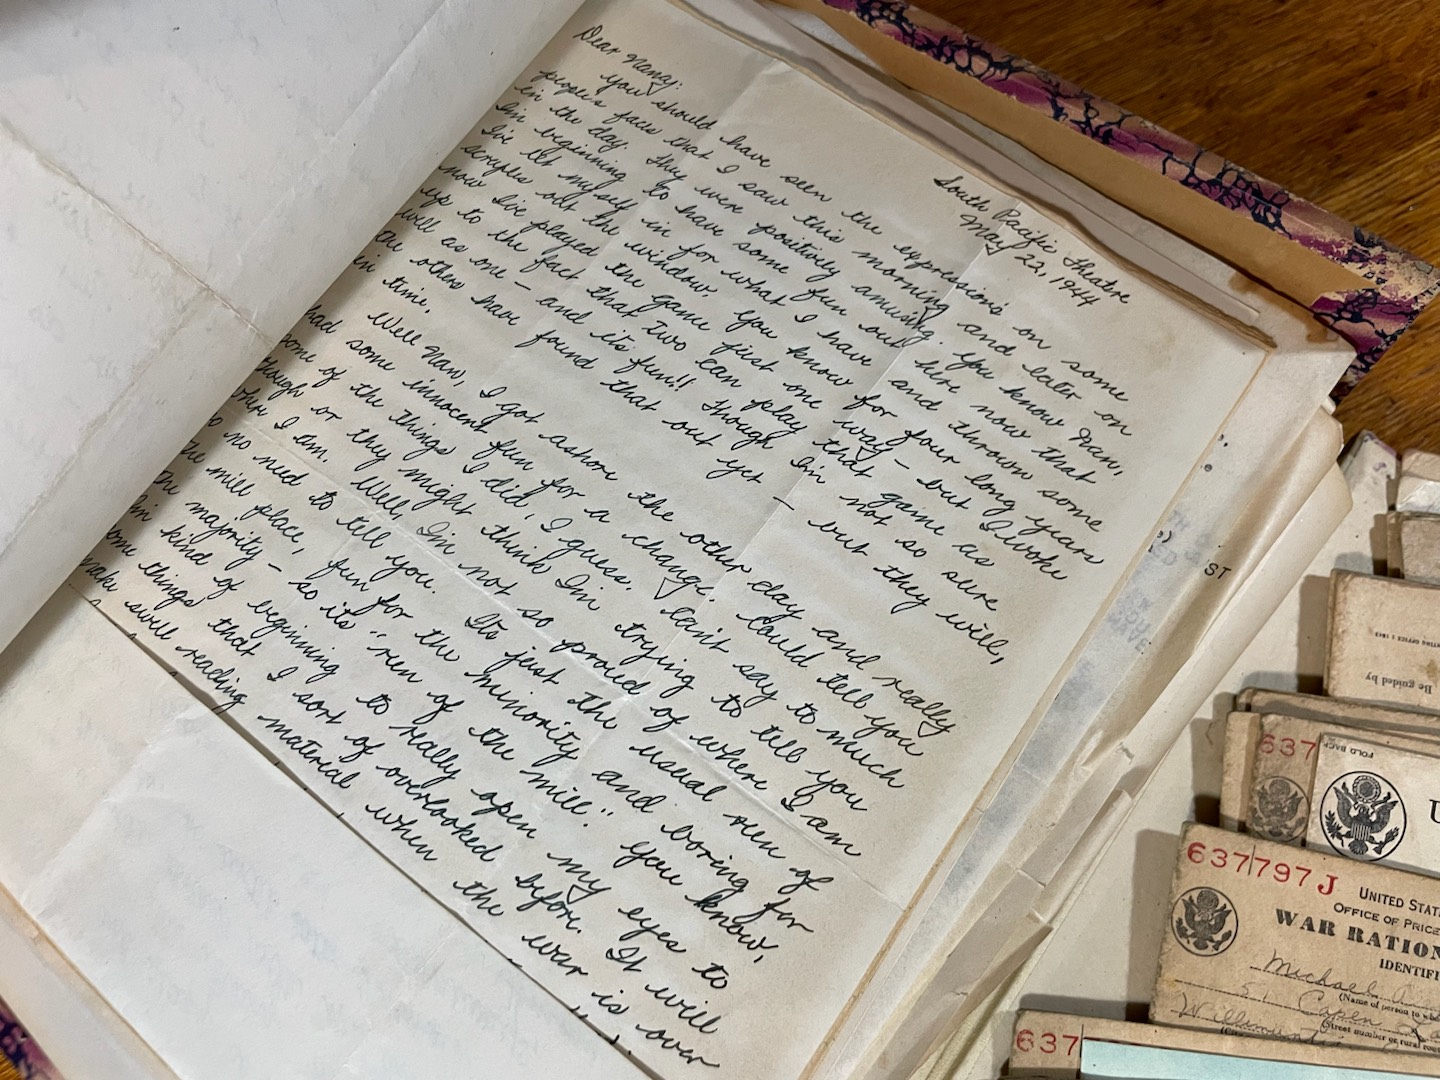 South Pacific Theatre
May 22, 1944
Dear Nany:
You should have seen the expressions on some
peoples faces that I saw this morning and later on
in the day. They were positively amusing. You know Nan,
I'm beginning to have some fun out here now that
I've let myself in for what I have and thrown some
scruples out the window. You know for four long years
now I've played the game just one way - but I woke
up to the fact that two can play that game as
well as one - and its fun!! Though I'm not so sure
the others have found that out yet - but they will,
in time.
Well Nan, I got ashore the other day and really
had some innocent fun for a change. Could tell you
some of the things I did, I guess. Can't say to much
though or they might think I'm trying to tell you
where I am. Well, I'm not so proud of where I am
so no need to tell you. Its just the usual run of
the mill place, fun for the minority and boring for
the majority - so its "run of the mill." You know,
I'm kind of beginning to really open my eyes to
some things that I sort of overlooked before. It will
make swell reading material when the war is over
ST
Be guided by
637
FOLD BACK
U
637797 J
UNITED STAT
OFFICE OF PRICE
WAR RATION
IDENTIFI
Michael
(Name of person to wh
51 Capen
(Street number or rural rout
637